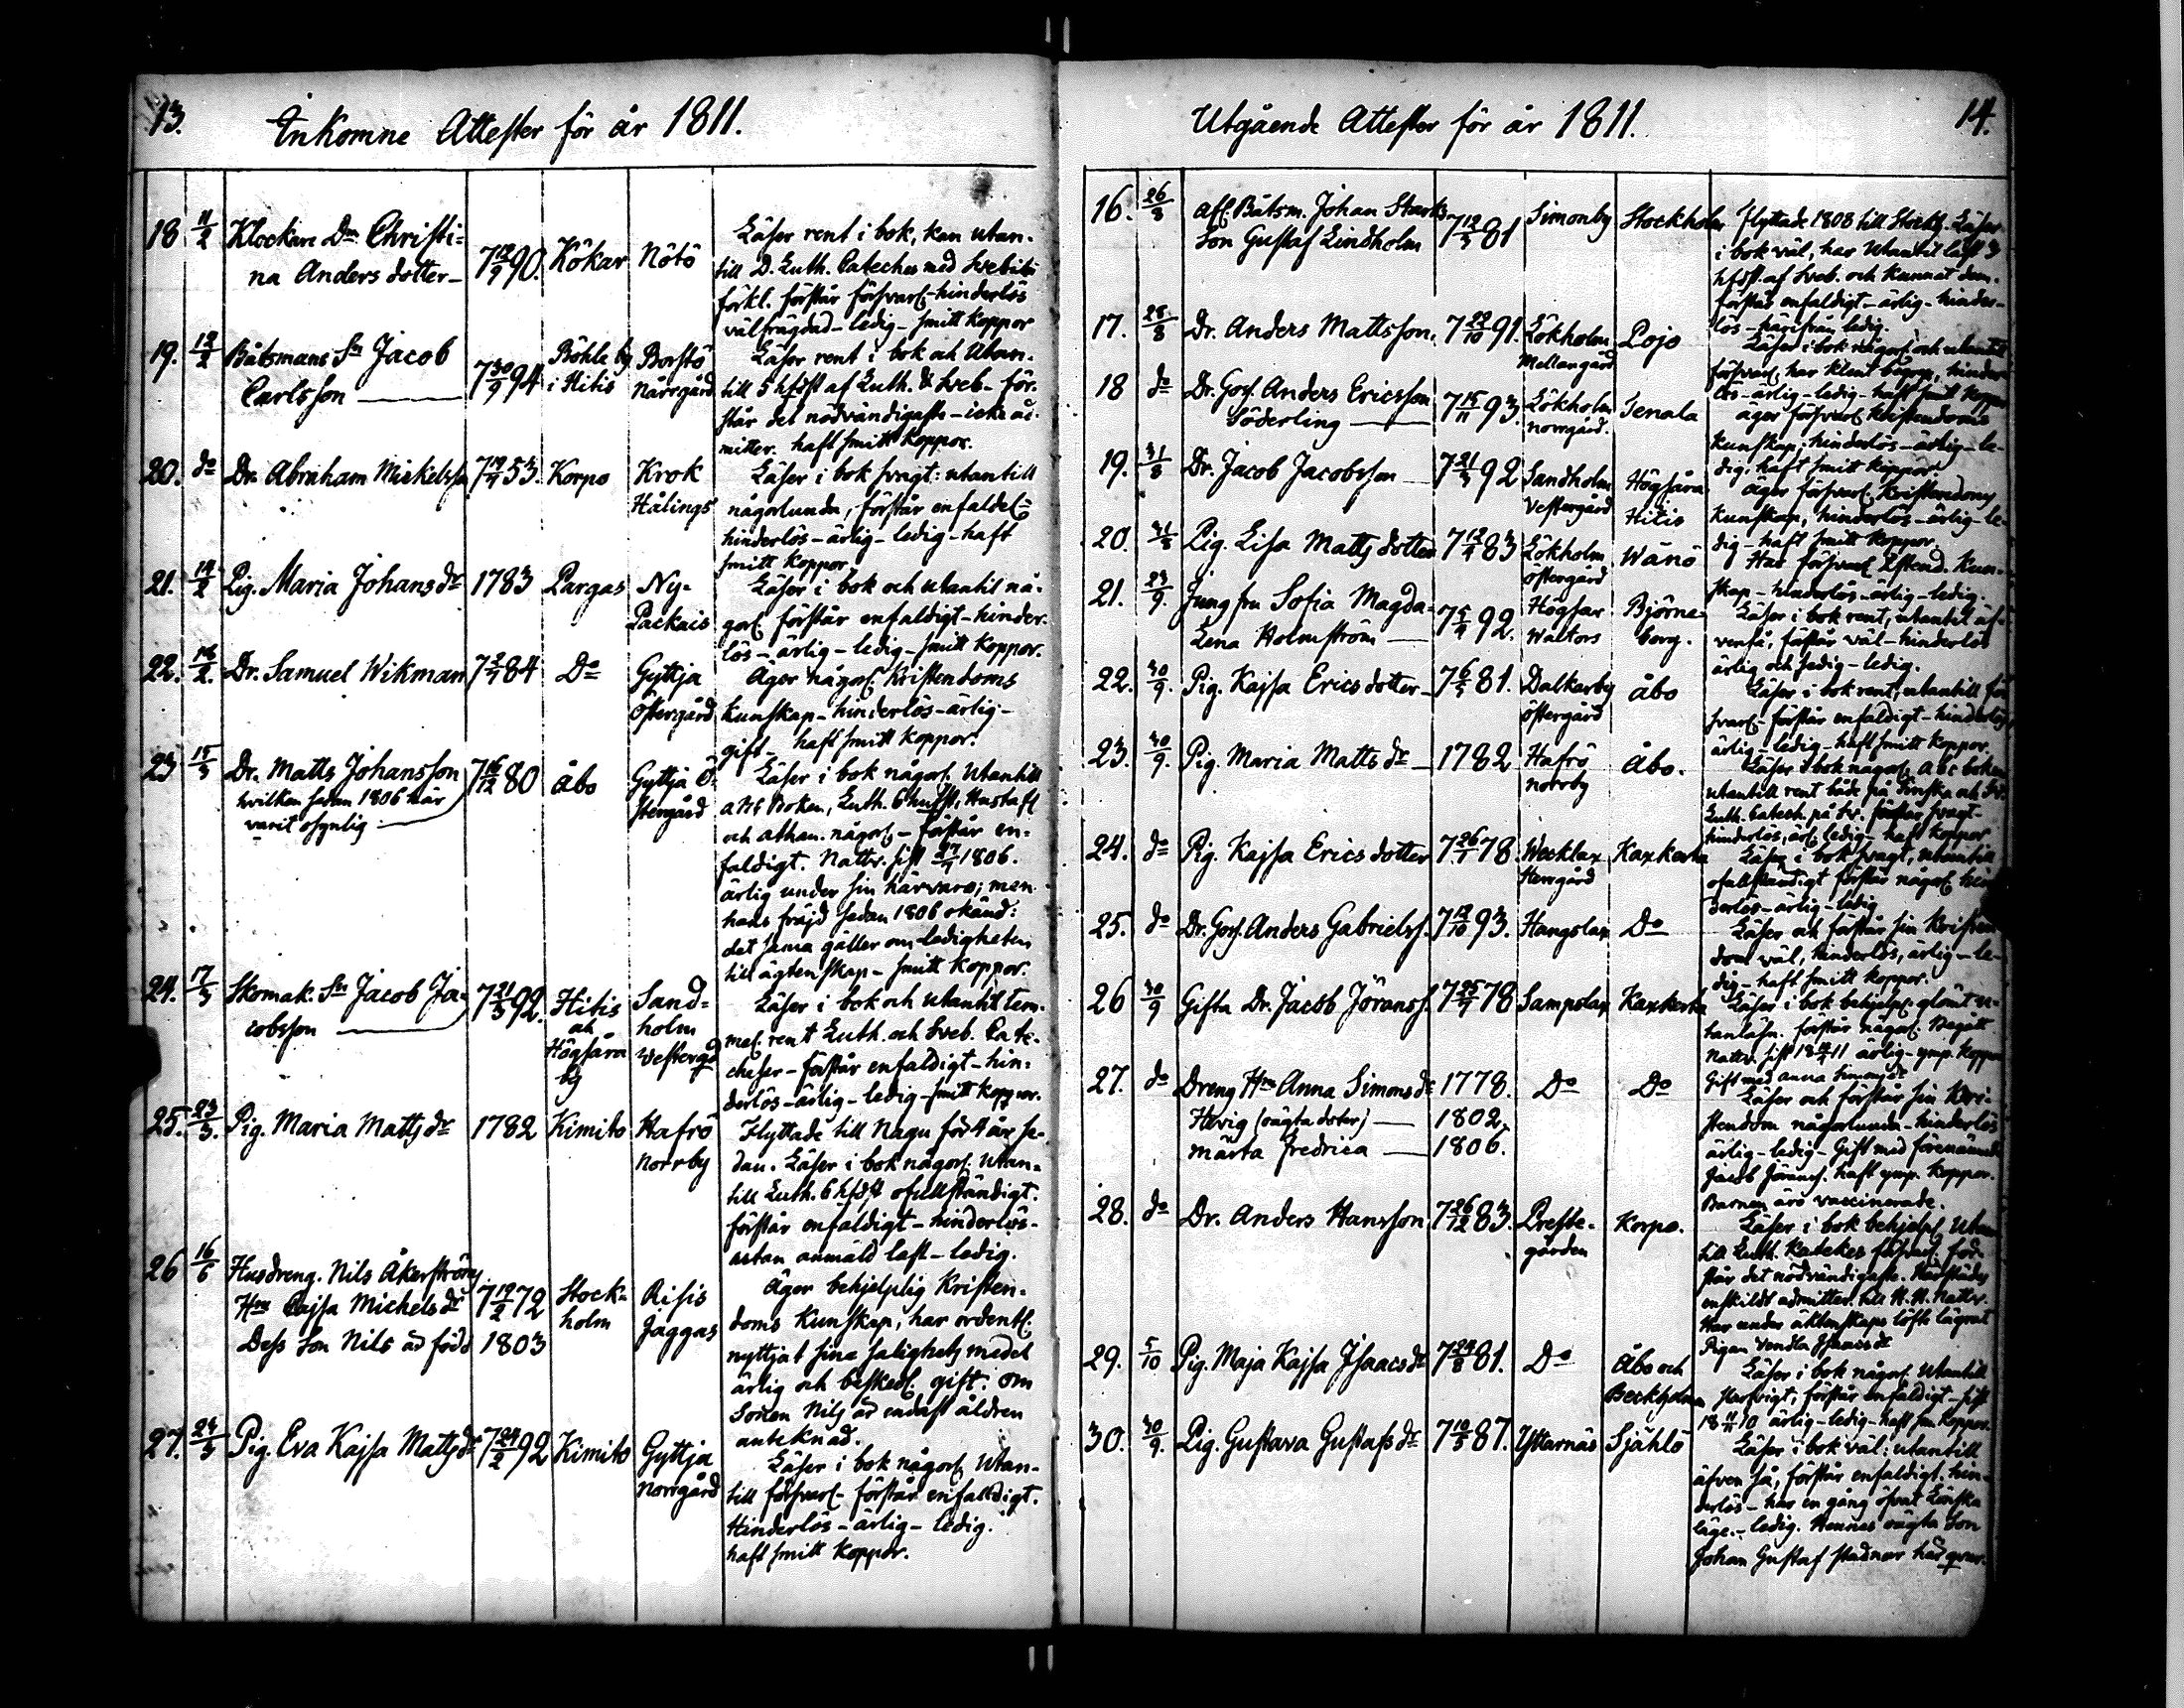 13.
Inkomne Attester för år 1811.
18 11/2 Klockare Dr Christi=
na Anders dotter- 7 12/9 90. Kökar Nötö
Läser rent i bok, kan utan-
till D. Luth. Cateches med Svebilii
förkl. förstår försvarl.-hinderlös
välfrägdad-ledig-smitt koppor
19. 12/2 Båtsmans Sn Jacob
Carlsson 7 30/9 94 Böhle by
i Hitis
Borstö
Norrgård
Läser rent i bok och Utan-
till 5 hfdst af Luth. & Sveb- för-
står det nödvändigaste-icke ad-
mitter. haft smitt koppor.
20. do Dr. Abraham Mickelsson 53. Korpo Krok
Hålings
Läser i bok svagt: utantill
någorlunda, förstår enfaldel:
hinderlös-ärlig-ledig-haft
smitt koppor.
21. 14/2 Pig. Maria Johans dr 1783 Pargas Ny-
Päckais
Läser i bok och utantil nå-
gorl. förstår enfaldigt-hinder-
lös-ärlig-ledig-smitt koppor.
22. 14/2. Dr. Samuel Wikman 84 Do Gyttja
Östergård
Äger någorl. Kristendoms
Kunskap-hinderlös-ärlig-
gift- haft smitt koppor.
23 15/3 Dr. Matts Johansson
hvilken sedan 1806 här
varit osynlig 7 16/12 80 Åbo Gyttja Ö-
stergård
Läser i bok någorl. Utantill
ABC Boken, Luth. 6 hufst, Hustafl
och Athan. någorl.-förstår en-
faldigt. Nattv. sist 1806.
ärlig under sin härvaro; men
hans fräjd sedan 1806 okänd:
det sama gäller om ledigheten
till ägtenskap-smitt koppor.
24. 17/3 Skomak. Sn Jacob Ja-
cobsson 7 21/3 92. Hitis
och
Högsåra
by
Sand-
holm
Westergd
Läser i bok och utantil tem-
mel. rent Luth. och Sveb. Cate-
cheser-förstår enfaldigt-hin-
derlös-ärlig-ledig-smitt koppor.
25. 23/3. Pig. Maria Matts dr 1782 Kimito Hafrö
Norrby
Flyttade till Nagu för 4 år se-
dan. Läser i bok någorl. utan-
till Luth. 6 hfdst ofullständigt.
förstår enfaldigt-hinderlös-
anmäld last-ledig.
26 16/6 Husdreng. Nils Åkerströms
Hru Cajsa Michels dr 7 12/2 72
Dess Son Nils är född 1803
Stock-
holm
Risis
Jaggas
Äger behjelplig Kristen-
doms Kunskap, har ordentl.
nyttjat sina salighets medel
ärlig och beskedl. gift. om
Sonen Nils är endast åldren
anteknad.
27. 24/3 Pig. Eva Kajsa Matts dr 7 24/2 92 Kimito Gyttja
Norrgård
Läser i bok någorl. Utan-
till försvarl.-förstår enfaldigt.
Hinderlös-ärlig-ledig.
haft smitt koppor.
Utgående Attester för år 1811.
14.
16. 26/8 Afl. Båtsm. Johan Starks
Son Gustaf Lindholm 7 12/3 81 Simonby Stockholm
Flyttade 1808 till Stockh. Läser
i bok väl, har Utantil läst 3
hfdst. af Sveb. och Kunnat dem.
förstår enfaldigt-ärlig-hinder-
lös-härifrån ledig.
17. 28/8 Dr. Anders Mattsson. 7 22/10 91. Lökholm
Mellangård
Pojo
Läser i bok någorl. och utantil
försvarl. har klent begrep, hinder-
lös-ärlig-ledig-haft smitt koppor
18 do Dr. Gos. Anders Ericsson
Söderling 7 15/11 93. Lökholm
norrgård.
Tenala
äger försvarl. Kristendoms
kunskap, hinderlös-ärlig-le-
dig. haft smitt koppor.
19. 31/8 Dr. Jacob Jacobsson 7 21/3 92 Sandholm
Vestergård
Högsåra
Hitis
Äger försvarl. Kristendoms
Kunskap, hinderlös-ärlig-le-
dig-haft smitt koppor.
20. 31/8 Pig. Lisa Matts dotter 83 Lökholm
Östergård
Wänö
Har försvarl. Kristend. Kun-
skap-hinderlös-ärlig-ledig.
21. 23/9. Jungfru Sofia Magda-
Lena Holmström 92. Högsar
Waltors
Björne-
borg.
Läser i bok rent, utantil äf-
venså, förstår väl-hinderlös
ärlig och sedig-ledig.
22. 30/9. Pig. Kajsa Erics dotter- 81. Dalkarby
Östergård
Åbo
Läser i bok rent, utantill för
svarl.-förstår enfaldigt-hinderlös,
ärlig-ledig-haft smitt koppor.
23. 30/9. Pig. Maria Matts dr 1782 Hafrö
norrby
Åbo.
Läser i bok någorl. abc boken
utantill rent både på Finska och Sv.
Luth. Catech. på Sv. förstår svagt-
hinderlös, ärl. ledig-haft koppor
24. do Pig. Kajsa Erics dotter 78 Wecklax
Herrgård
Kaxkerta
Läser i bok svagt, utantill
ofullständigt förstår någorl. hin
derlös-ärlig-ledig
25. do Dr. Gos. Anders Gabrielss. 7 12/10 93. Hangslax Do
Läser och förstår sin Kristen
dom väl, hinderlös, ärlig-le-
dig-haft smitt koppor.
26 30/9 Gifta Dr. Jacob Jöranss. 78 Sampolax Kaxkerta
Läser i bok behjelpl. glömt u-
tanläsn. förstår någorl. Begått
Nattv. sist 11 ärlig-ymp. koppor
Gift med Anna Simons dr
27. do Dreng Hru Anna Simons dr 1778. Do Do
Hevig (oägta dotter) 1802.
Märta Fredrica 1806.
Läser och förstår sin Kri-
stendom någorlunda-hinderlös
ärlig-ledig-Gift med förenämnde
Jacob Jöranss. haft ymp. koppor.
Barnen äro vaccinerade.
28. do Dr. Anders Hansson 7 26/12 83. Preste-
gården
Korpo.
Läser i bok behjelpl. Utan
till Luth. Katekes försvarl. för-
står det nödvändigaste.
enskildt admitter. till H. H. Nattv.
Har under äktenskaps löfte lägrat
Pigan Vendla Isaacs dr
29. 5/10 Pig. Maja Kajsa Isaacs dr 7 24/8 81. Do Åbo och
Beckholmen
Läser i bok någorl. Utantill
förstår enfaldigt-sist
18 11/11 10 ärlig-ledig-haft sm koppor.
30. 30/9. Pig. Gustava Gustafs dr 7 10/5 87. Yttarnäs Själö
Läser i bok väl: utantill
äfven så, förstår enfaldigt. hin-
derlös-har en gång öfvat Lönska
läge.-ledig. Hennes oägta Son
Johan Gustaf stadnar här qvar.